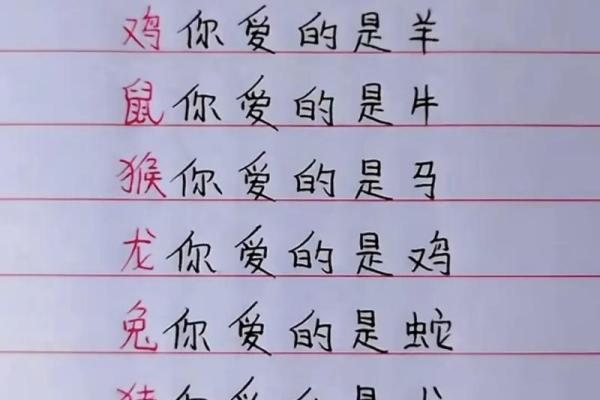 鸡你爱的是羊
鼠你爱的是牛
猴你爱的是马
龙你爱的是鸡
兔你爱的是蛇
猪你爱的是